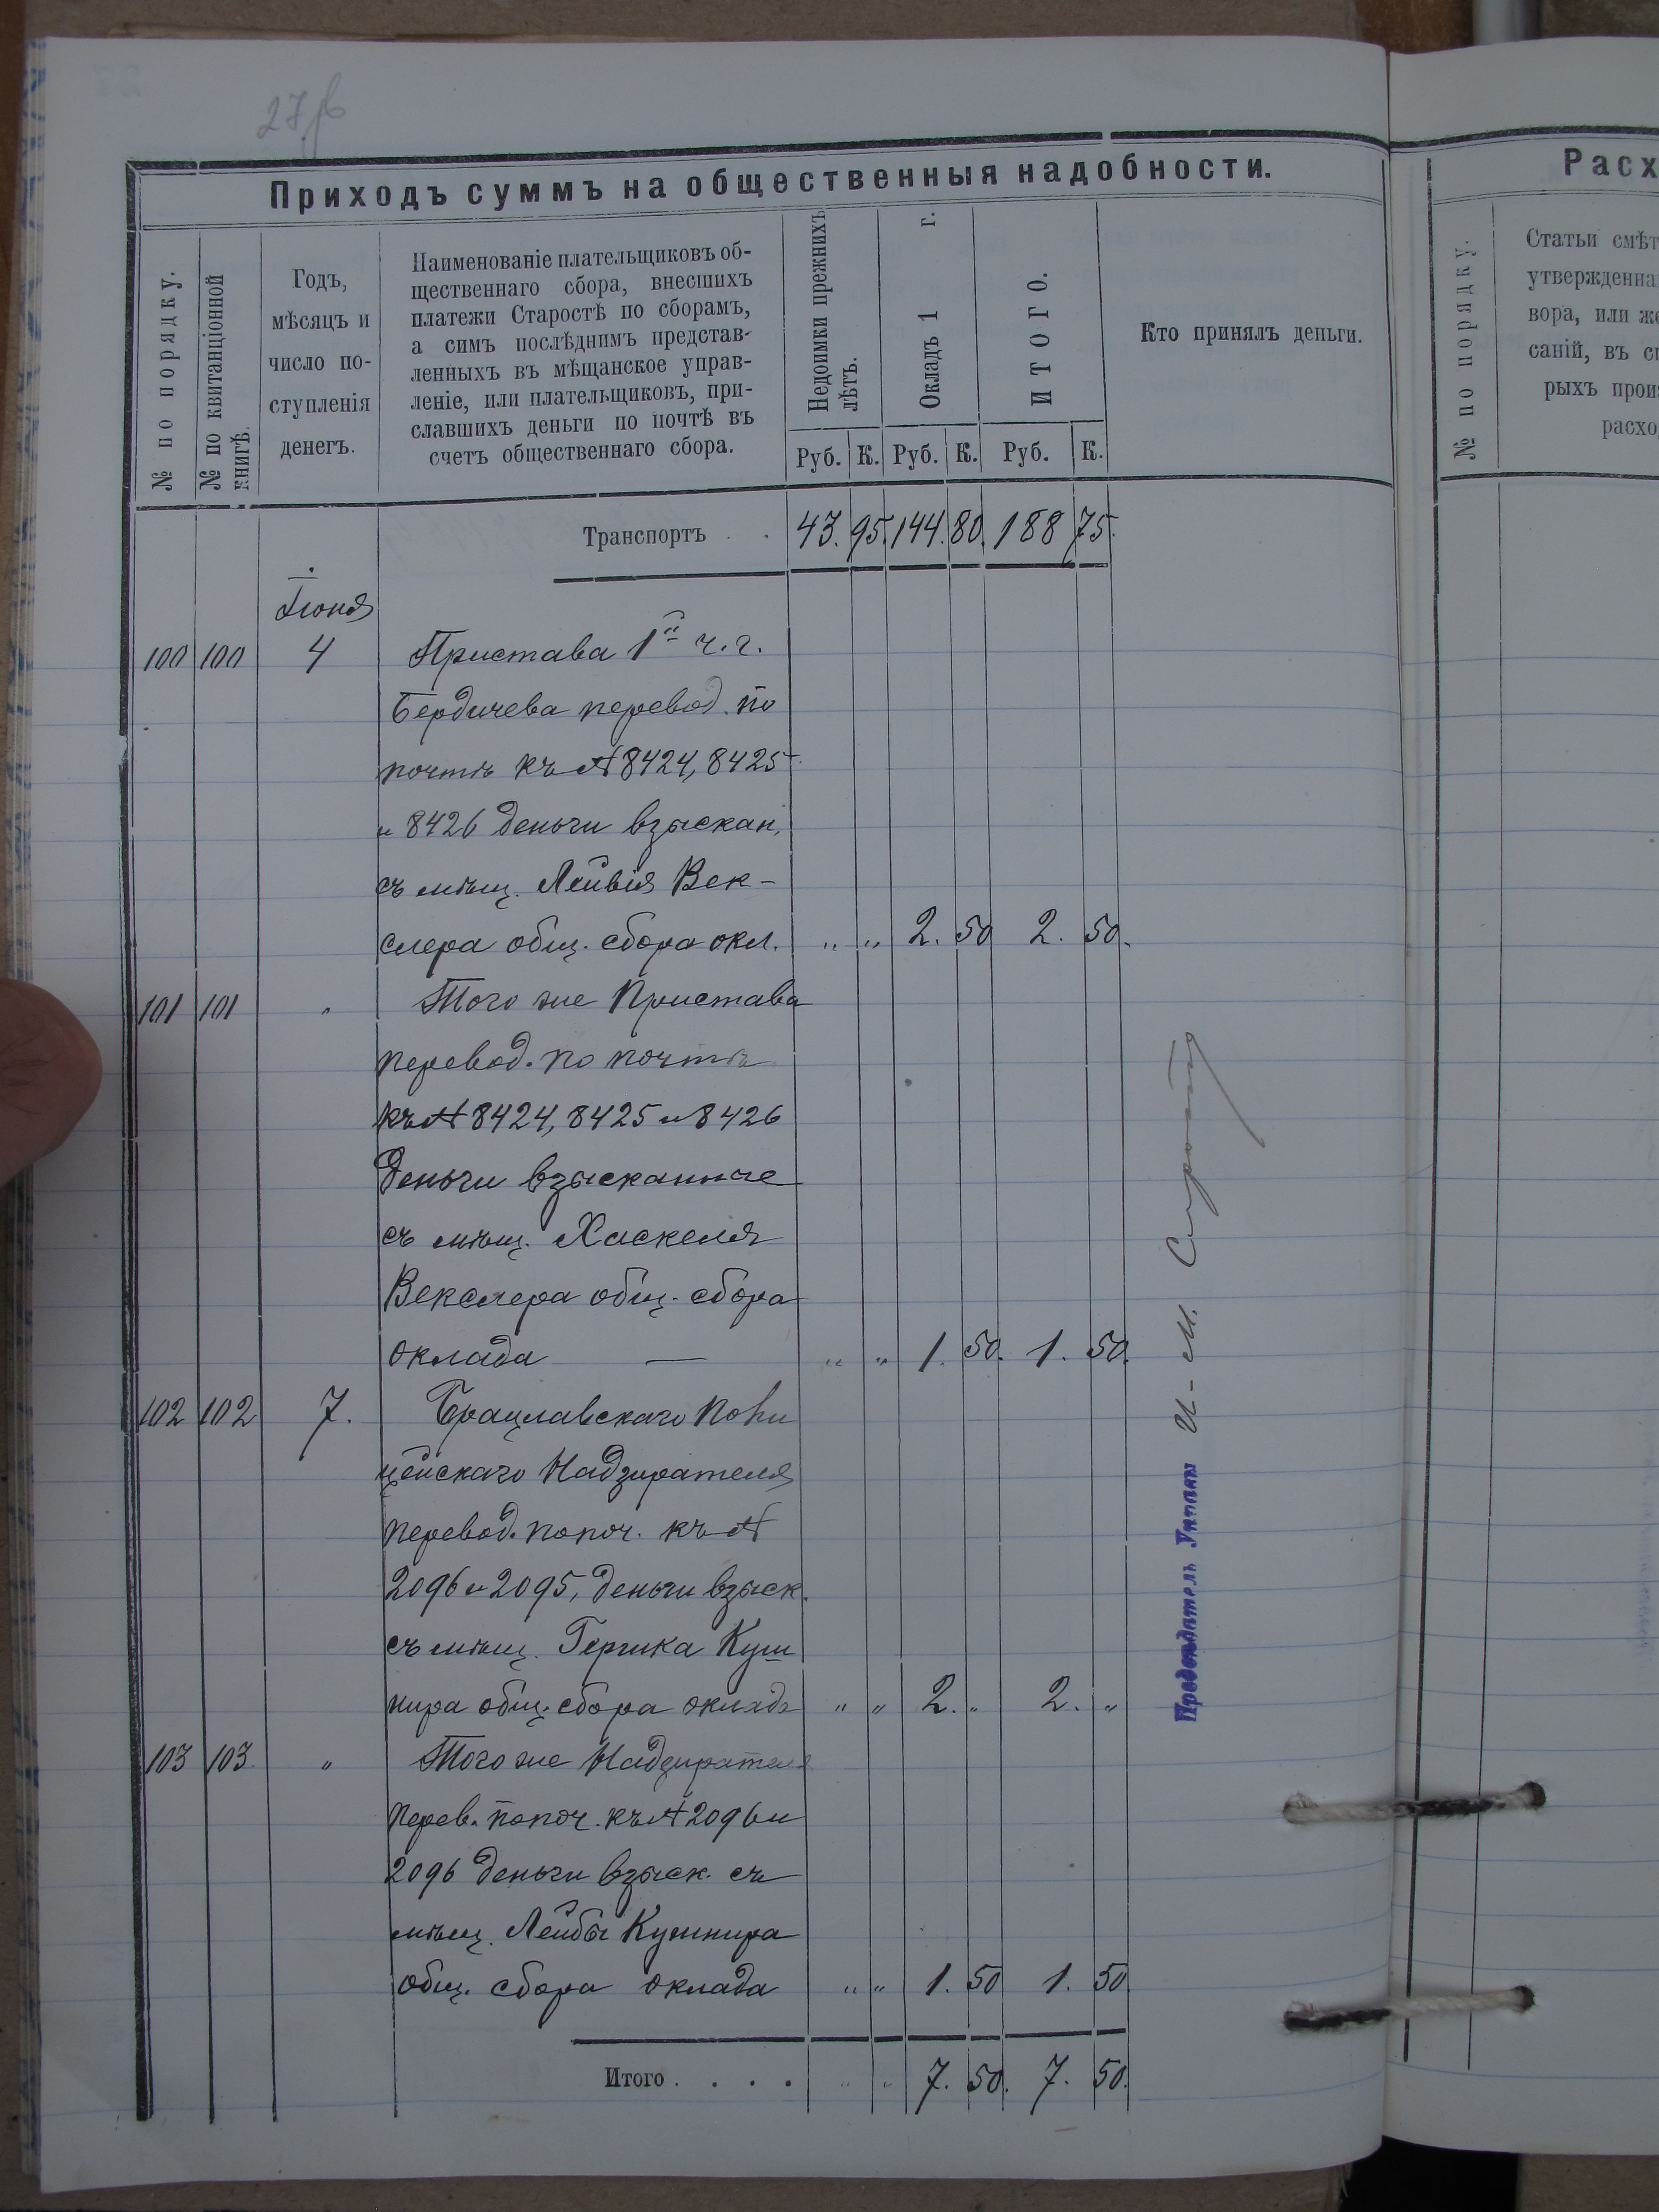 27
Приходъ суммъ на общественныя надобности.
№ по порядку.
№ по квитанціонной
книгѣ.
Годъ,
мѣсяцъ и
число по-
ступленія
денегъ.
Наименованіе плательщиковъ об-
щественнаго сбора, внесшихъ
платежи Старостѣ по сборамъ,
а симъ послѣднимъ представ-
ленныхъ въ мѣщанское управ-
леніе, или плательщиковъ, при-
славшихъ деньги по почтѣ въ
счетъ общественнаго сбора.
Недоимки прежнихъ
лѣтъ.
Окладъ 1 г.
ИТОГО.
Руб. К. Руб. К. Руб. К.
Кто принялъ деньги.
Транспортъ . . 43. 95. 144. 80. 188 75.
Іюня
100 100 4 Пристава 1й ч. г.
Бердичева перевод. по
почтѣ къ № 8424, 8425
и 8426 деньги взыскан.
съ мѣщ. Лейвія Век-
слера общ. сбора окл. " " 2. 50 2. 50.
101 101 " Того же Пристава
перевод. по почтѣ
къ № 8424, 8425 и 8426
деньги взысканные
съ мѣщ. Хаскеля
Векслера общ. сбора
оклада — " " 1. 50. 1. 50.
102 102 7. Брацлавскаго Поли
цейскаго Надзирателя
перевод. по поч. къ №
2096 и 2095, деньги взыск.
съ мѣщ. Гершка Куш
нира общ. сбора окладъ " " 2. " 2. "
103 103. " Того же Надзирателя
перев. по поч. къ № 2096 и
2096 деньги взыск. съ
мѣщ. Лейбы Кушнира
общ. сбора оклада " " 1. 50 1. 50.
Итого . . . . " " 7. 50. 7. 50.
Предсѣдатель Управы И. М.
Расх
№ по порядку.
Статьи смѣт
утвержденна
вора, или же
саній, въ си
рыхъ произ
расхо